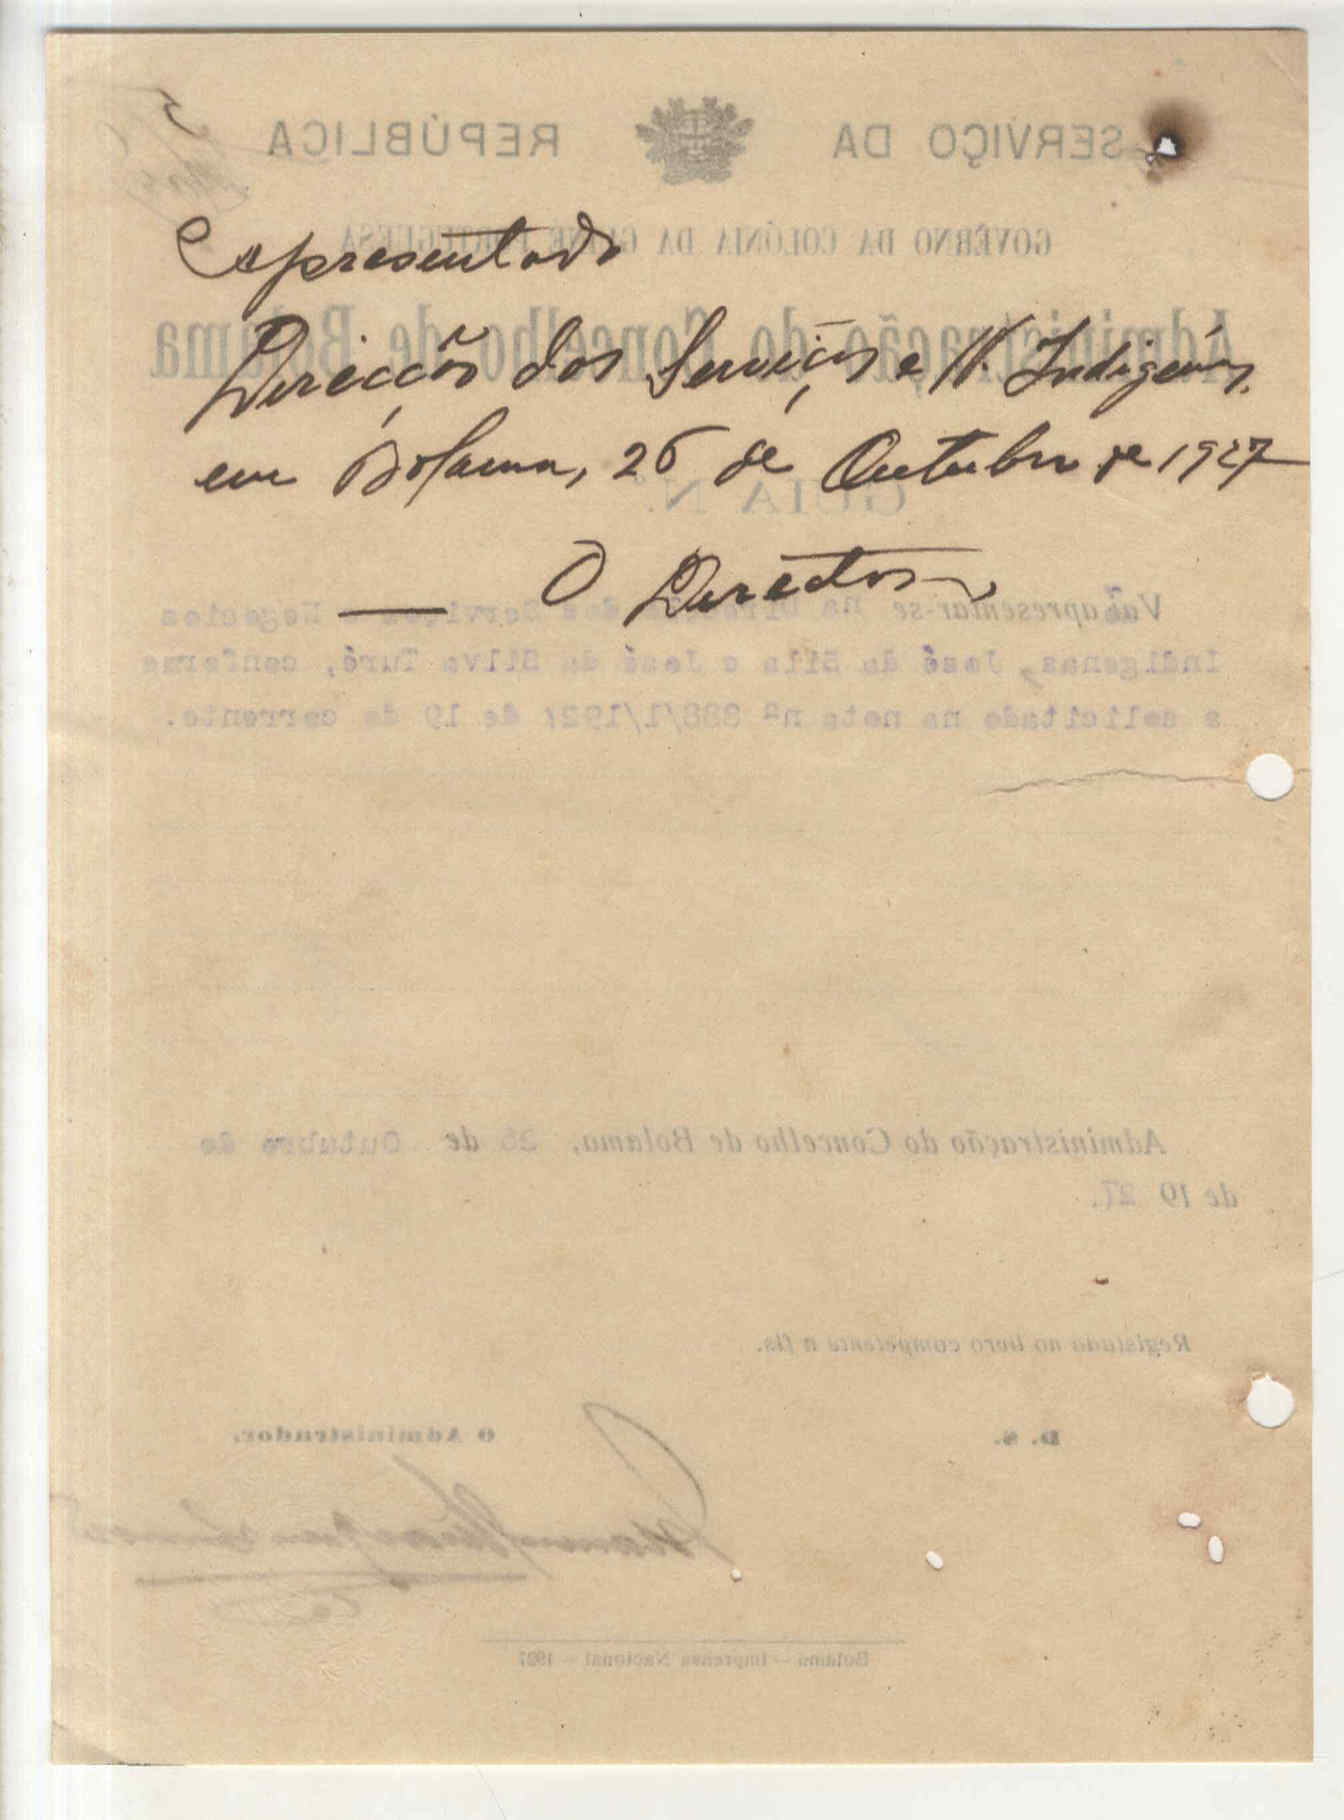 Apresentado
Direcção dos Serviços e N. Indigenas,
em Bolama, 26 de Outubro de 1927
O Director
SERVIÇO DA REPÚBLICA
GOVÊRNO DA COLÓNIA DA GUINÉ PORTUGUESA
Administração do Concelho de Bolama
GUIA N.º
Vai apresentar-se na Direcção dos Serviços e Negocios
Indigenas, José da Silva Turé, conforme
o solicitado na nota nº 888/1/1927 de 19 do corrente.
Administração do Concelho de Bolama, 26 de Outubro de
de 19 27.
Registada no livro competente a fls.
D. S.
O Administrador.
Bolama — Imprensa Nacional — 1927